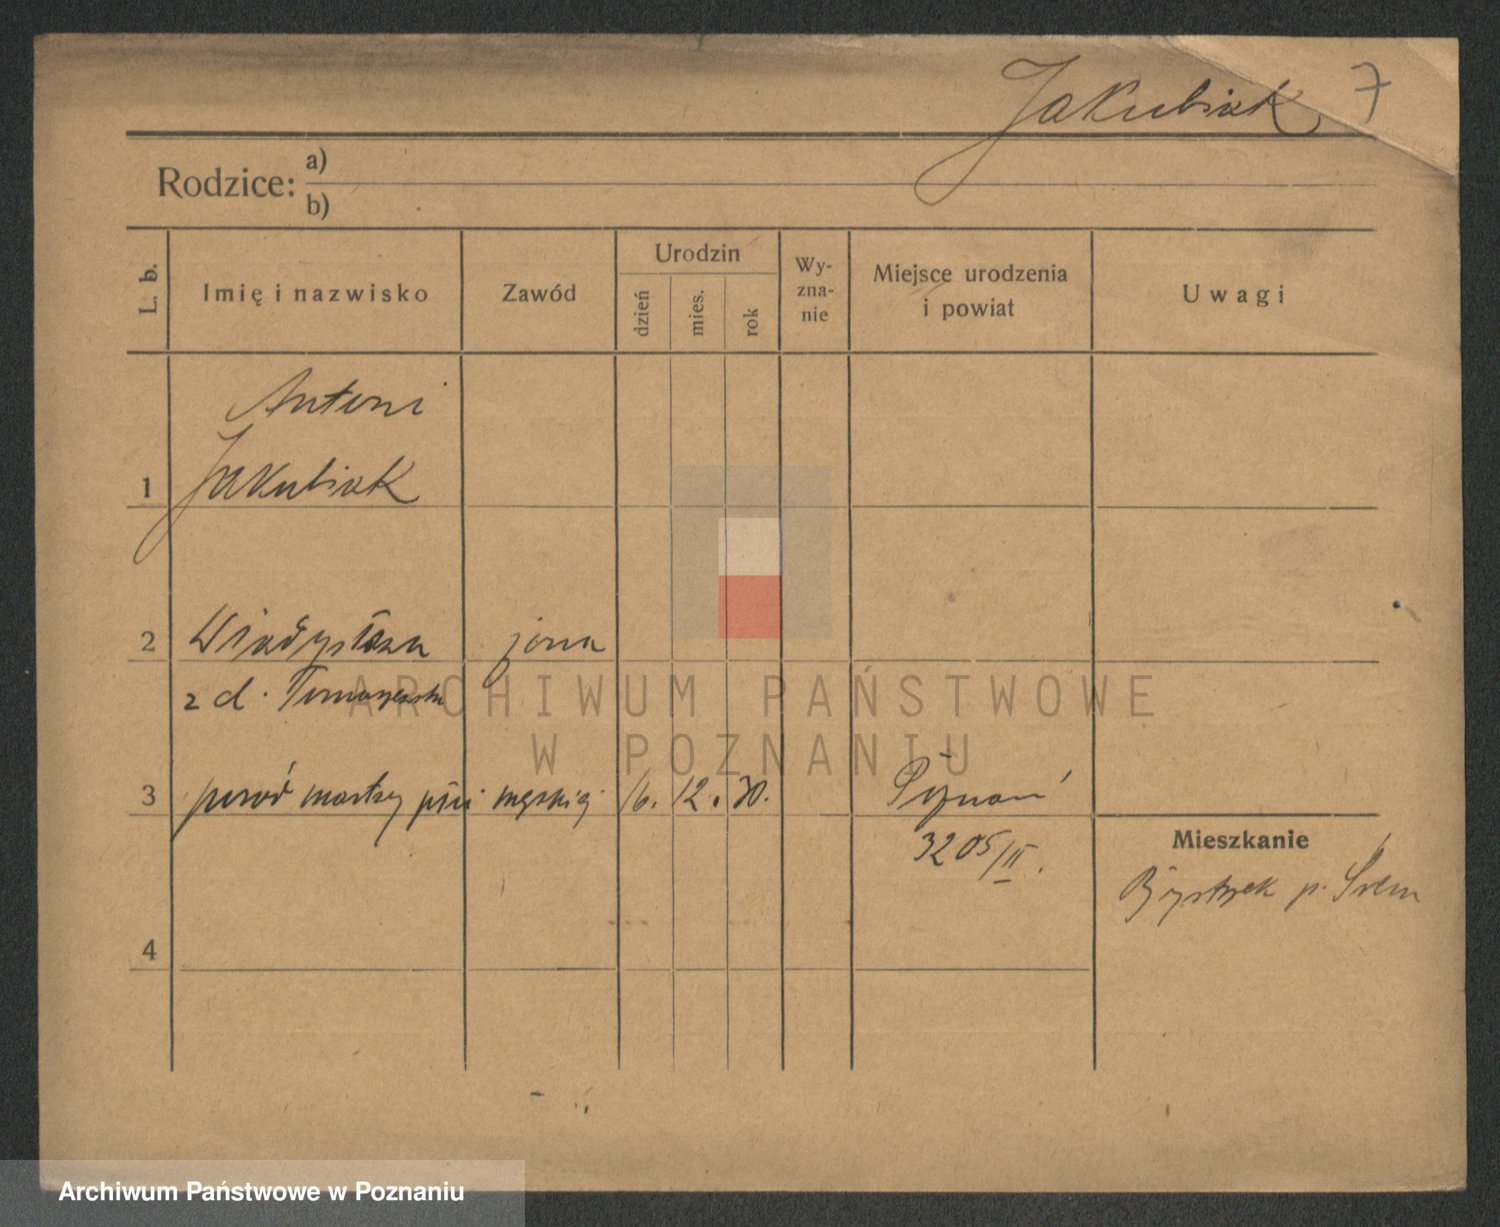 Jakubiak 7
Rodzice: a)
b)
L. b.
Imię i nazwisko
Zawód
Urodzin
dzień
mies.
rok
Wy-
zna-
nie
Miejsce urodzenia
i powiat
Uwagi
Antoni
1 Jakubiak
2 Władysława żona
z d.
3 poród martwy płci męskiej 16. 12. 30. Poznań
3205/II.
Mieszkanie
Bystrzek p. Śrem
4
ARCHIWUM PAŃSTWOWE
W POZNANIU
Archiwum Państwowe w Poznaniu